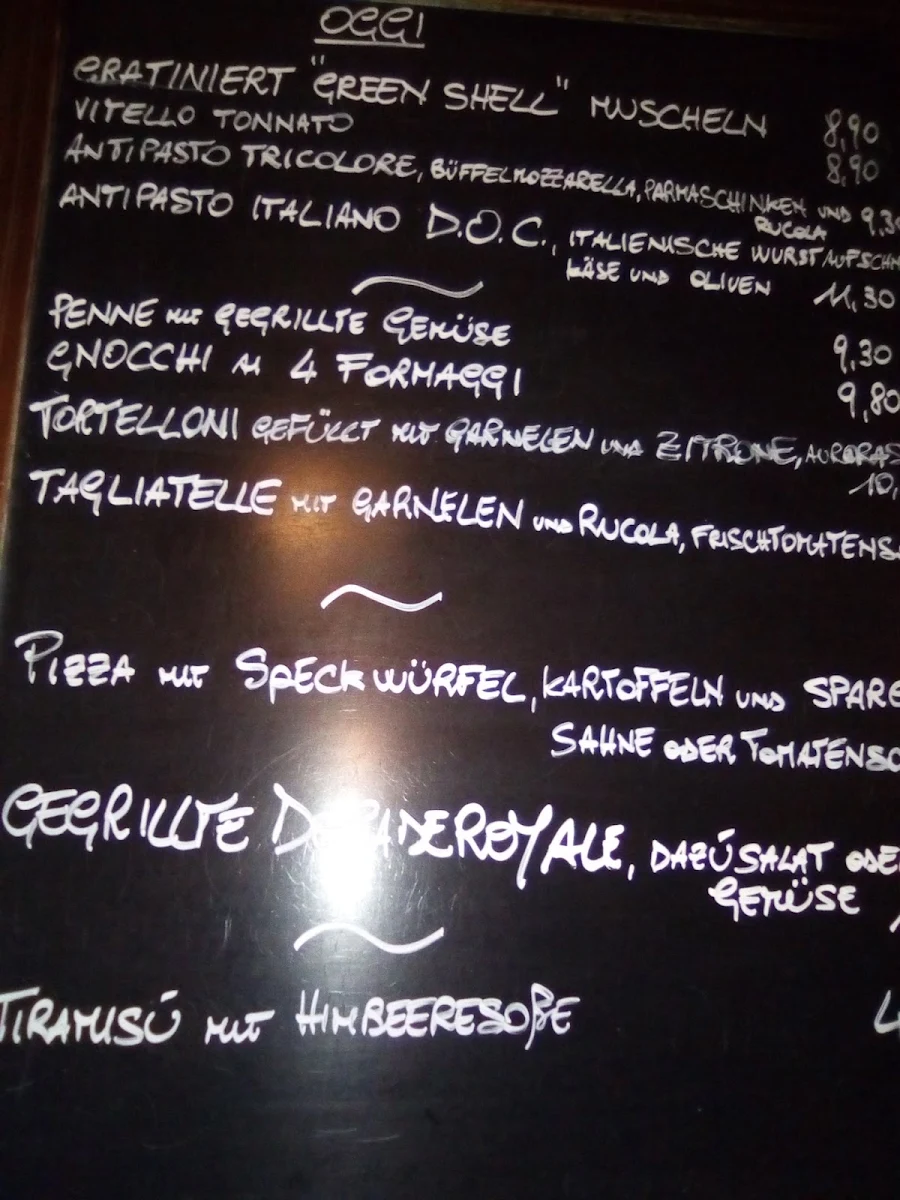 OGGI
GRATINIERT "GREEN SHELL" MUSCHELN 8,90
VITELLO TONNATO 8,90
ANTIPASTO TRICOLORE, BÜFFELMOZZARELLA, PARMASCHINKEN UND 9,3
RUCOLA
ANTIPASTO ITALIANO D.O.C., ITALIENISCHE WURSTAUFSCHN
KÄSE UND OLIVEN 11,30
PENNE MIT GEGRILLTE GEMÜSE 9,30
GNOCCHI AI 4 FORMAGGI 9,80
TORTELLONI GEFÜLLT MIT GARNELEN UND ZITRONE, AURORAS
10,
TAGLIATELLE MIT GARNELEN UND RUCOLA, FRISCHTOMATENS
PIZZA MIT SPECKWÜRFEL, KARTOFFELN UND SPARG
SAHNE ODER TOMATENSO
GEGRILLTE DORADE ROYALE, DAZÚ SALAT ODER
GEMÜSE
TIRAMISÚ MIT HIMBEERESOßE 4